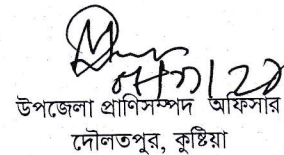 উপজেলা প্রাণিসম্পদ অফিসার
দৌলতপুর, কুষ্টিয়া